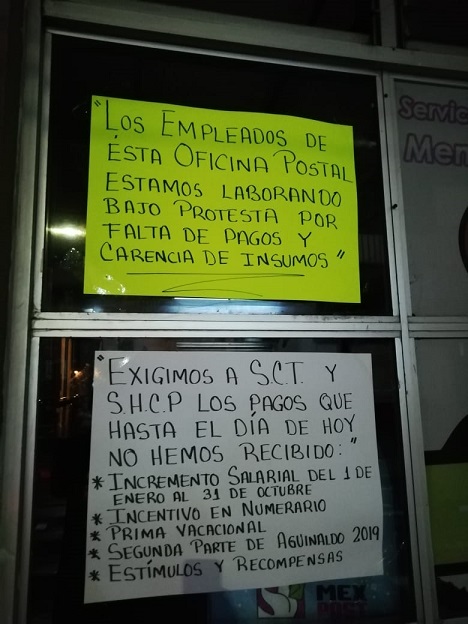 "LOS EMPLEADOS DE
ÉSTA OFICINA POSTAL
ESTAMOS LABORANDO
BAJO PROTESTA POR
FALTA DE PAGOS Y
CARENCIA DE INSUMOS"
"EXIGIMOS A S.C.T. Y
S.H.C.P LOS PAGOS QUE
HASTA EL DÍA DE HOY
NO HEMOS RECIBIDO:"
* INCREMENTO SALARIAL DEL 1 DE
ENERO AL 31 DE OCTUBRE
* INCENTIVO EN NUMERARIO
* PRIMA VACACIONAL
* SEGUNDA PARTE DE AGUINALDO 2019
* ESTÍMULOS Y RECOMPENSAS
MEX
POST
Servic
Men